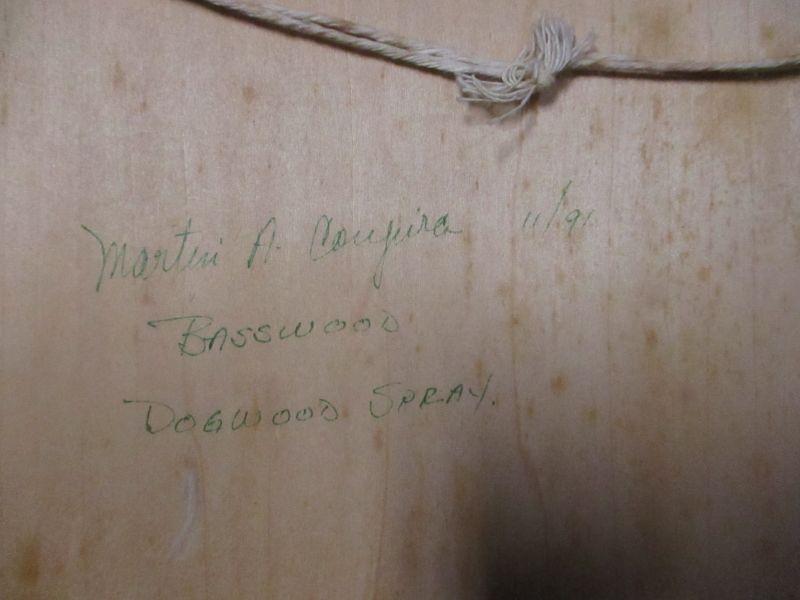 Martin A. 11/91
BASSWOOD
DOGWOOD SPRAY.